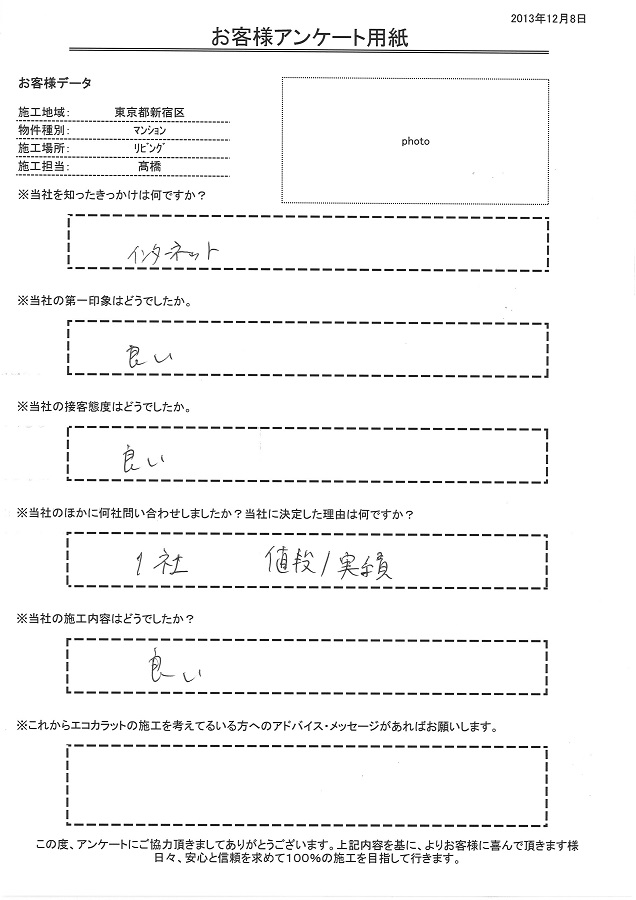 2013年12月8日
お客様アンケート用紙
お客様データ
施工地域: 東京都新宿区
物件種別: ﾏﾝｼｮﾝ
施工場所: ﾘﾋﾞﾝｸﾞ
施工担当: 高橋
photo
※当社を知ったきっかけは何ですか？
インターネット
※当社の第一印象はどうでしたか。
良い
※当社の接客態度はどうでしたか。
良い
※当社のほかに何社問い合わせしましたか？当社に決定した理由は何ですか？
1社 値段/実績
※当社の施工内容はどうでしたか？
良い
※これからエコカラットの施工を考えてるいる方へのアドバイス・メッセージがあればお願いします。
この度、アンケートにご協力頂きましてありがとうございます。上記内容を基に、よりお客様に喜んで頂きます様
日々、安心と信頼を求めて100%の施工を目指して行きます。